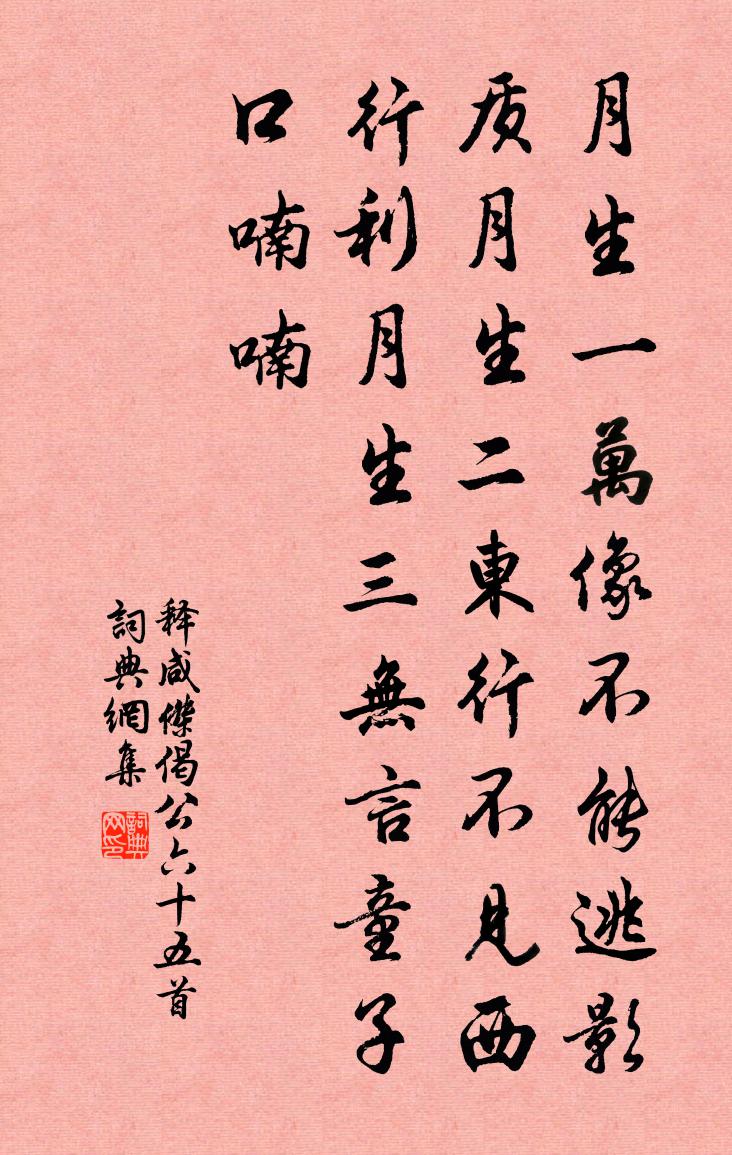 月生一萬像不能逃影
质月生二東行不見西
行利月生三無言童子
口喃喃
释咸傑偈公六十五首
詞典網集
詞典网印